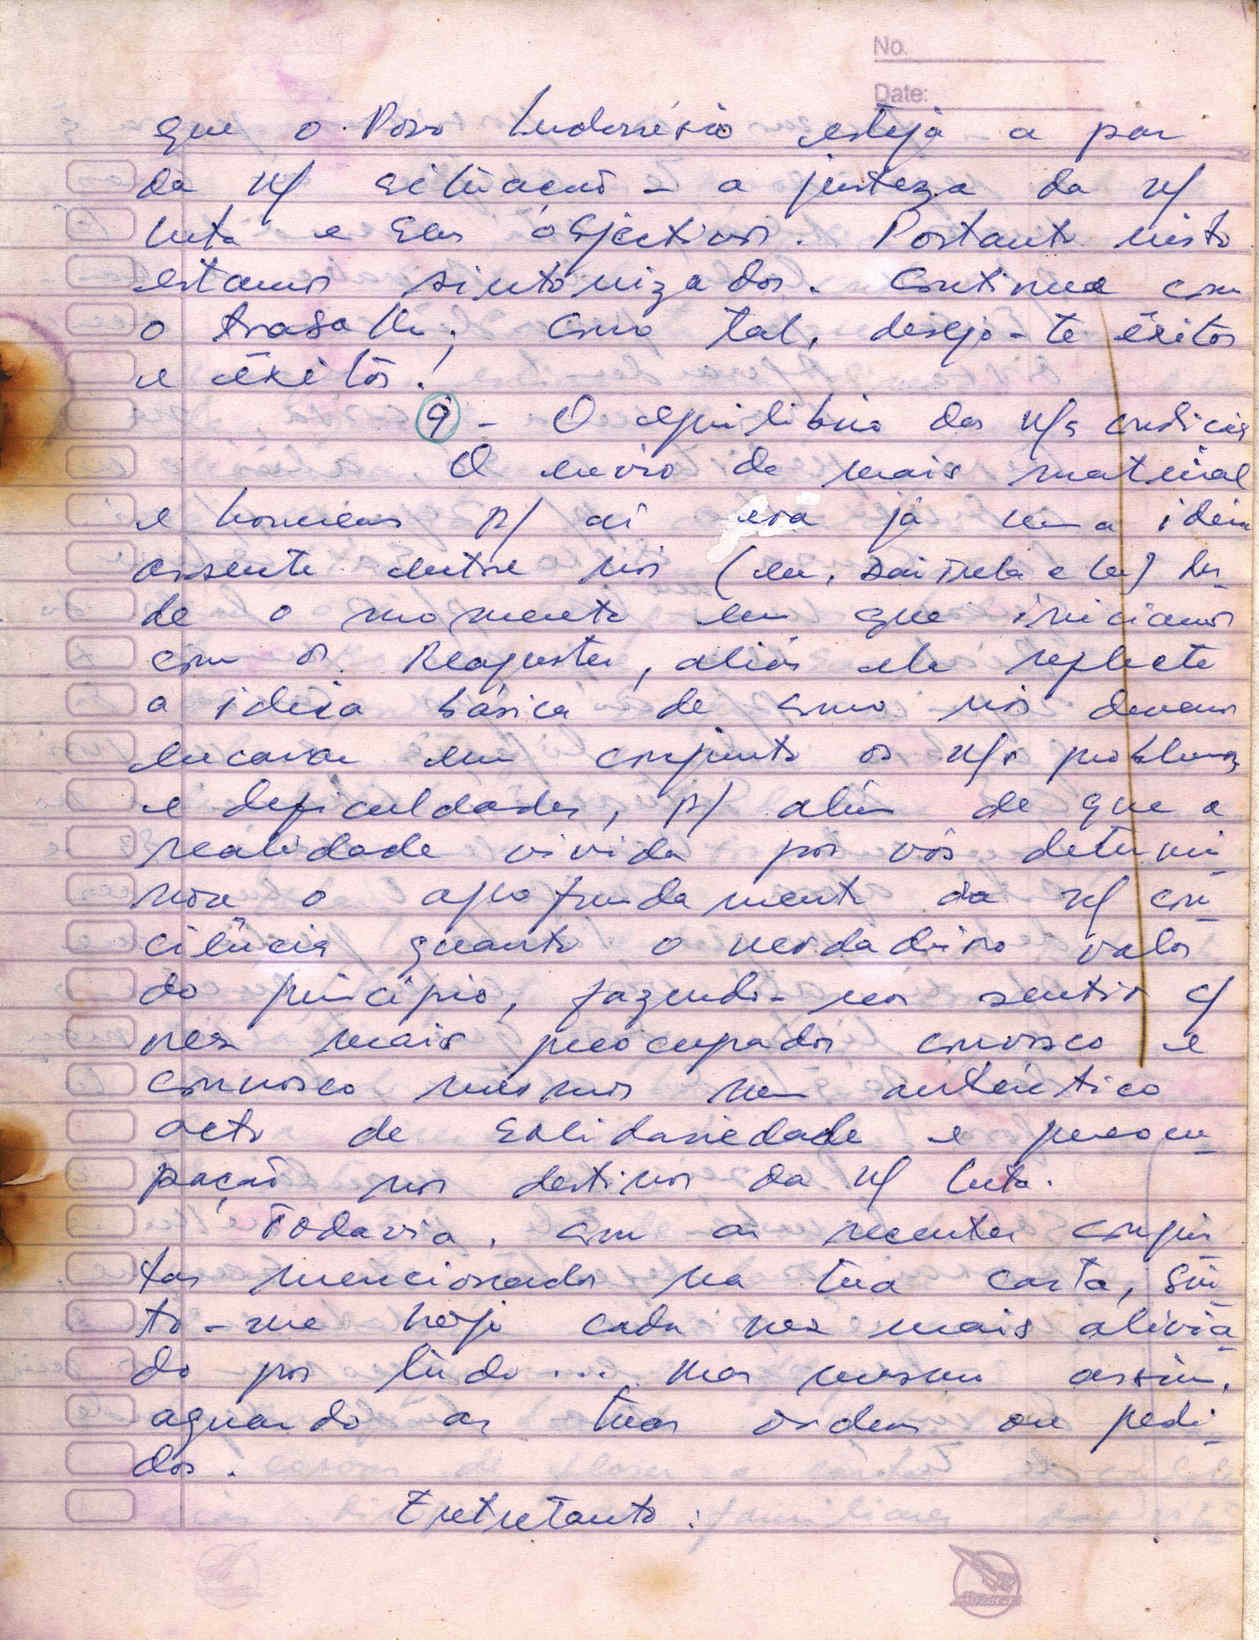 No.
Date:
que o Povo Indonésio esteja a par
da n/ situação - a justeza da n/
luta e seus objectivos. Portanto nisto
estamos sintonizados. Continua com
o trabalho; como tal, desejo-te êxitos
e êxitos!
9 - O equilíbrio das n/s condições
O envio de mais material
e homens p/ aí era já uma ideia
assente entre nós (eu, e ) des-
de o momento em que iniciamos
com os Reajustes, aliás ele reflecte
a ideia básica de como nós devemos
encarar em conjunto os n/s problemas
e deficuldades, p/ além de que a
realidade vivida por vós determi-
nou o aprofundamento da n/ cons-
ciência quanto o verdadeiro valor
do princípio, fazendo-nos sentir c/
vez mais preocupados convosco e
connosco mesmos num autêntico
acto de solidariedade e preocu-
pação nos destinos da n/ luta.
Todavia, com as recentes conquis-
tas mencionadas na tua carta, sin-
to-me hoje cada vez mais alivia-
do por tudo... mas mesmo assim,
aguardo as tuas ordens ou pedi-
dos.
Entretanto: